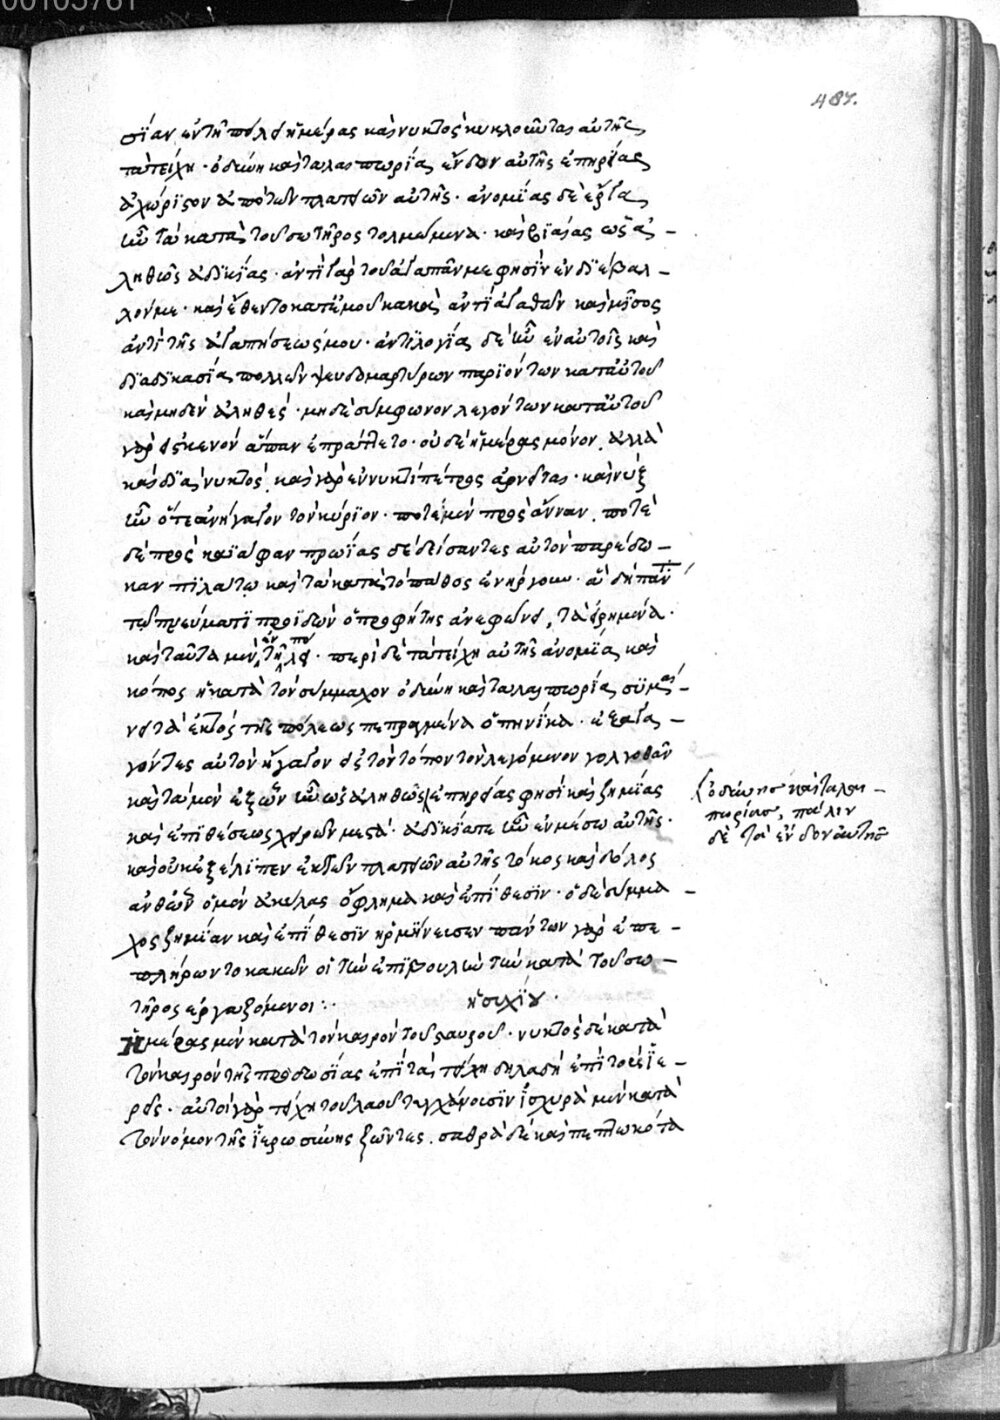 00103761
487.
σίαν ἐν τῇ πόλει ἡμέρας καὶ νυκτὸς κυκλοῦντας αὐτῆς
τὰ τείχη · ὀδύνη καὶ ταλαιπωρίας ἔνδον αὐτῆς ἐπηρείας
ἀχώριστον ἀπὸ τῶν πλατειῶν αὐτῆς · ἀνομίας δὲ
ἦν τὰ κατὰ τοῦ σωτῆρος τολμώμενα · καὶ ὡς ἀ-
ληθῶς ἀδικίας · ἀντὶ γὰρ τοῦ ἀγαπᾶν με φησὶν ἐνδιέβαλ-
λόν με · καὶ ἔθεντο κατ' ἐμοῦ κακὰ ἀντὶ ἀγαθῶν καὶ μῖσος
ἀντὶ τῆς ἀγαπήσεώς μου · ἀντιλογίας δὲ ἦν ἐν αὐτοῖς καὶ
διαδικασίας πολλῶν ψευδομαρτύρων παριόντων κατ' αὐτοῦ
καὶ μηδὲν ἀληθὲς · μηδὲ σύμφωνον λεγόντων κατ' αὐτοῦ
γὰρ ἐκεῖνον ἅπαν ἐπράττετο · οὐ δὲ ἡμέρας μόνον, ἀλλὰ
καὶ διὰ νυκτὸς, καὶ γὰρ ἐν νυκτὶ πέτρος ἀρνεῖται · καὶ νὺξ
ἦν ὅτε ἀνήγαγον τὸν κύριον · ποτὲ μὲν πρὸς ἄνναν, ποτὲ
δὲ πρὸς καϊάφαν πρωΐας δὲ δείσαντες αὐτὸν παρέδω-
καν πιλάτῳ καὶ τὰ κατὰ τὸ πάθος ἐνήργουν · ἃ δὴ
τῷ πνεύματι προϊδὼν ὁ προφήτης ἀνεφώνει, τὰ εἰρημένα ·
καὶ ταῦτα μὲν ἐν τῇ πόλει · περὶ δὲ τὰ τείχη αὐτῆς ἀνομία, καὶ
κόπος ἢ κατὰ τὸν σύμμαχον ὀδύνη καὶ ταλαιπωρίας σημαί-
νει τὰ ἐκτὸς τῆς πόλεως πεπραγμένα ὁπηνίκα · ἐξαγα-
γόντες αὐτὸν ἤγαγον εἰς τὸν τόπον τὸν λεγόμενον γολγοθᾶν
καὶ τὰ μὲν ἔξω ἦν ὡς ἀληθῶς ἐπηρείας φησὶ καὶ ζημίας
καὶ ἐπιθέσεως χειρῶν μεστὰ · ἀδικία τε ἦν ἐν μέσῳ αὐτῆς ·
καὶ οὐκ ἐξέλιπεν ἐκ τῶν πλατειῶν αὐτῆς τόκος καὶ δόλος
ἀνθ' ὧν ὁ μὲν ἀκύλας ὄφλημα καὶ ἐπίθεσιν · ὁ δὲ σύμμα-
χος ζημίαν καὶ ἐπίθεσιν ἡρμήνευσεν πάντων γὰρ ἐπε-
πλήρωντο κακῶν οἱ τὴν ἐπιβουλὴν τὴν κατὰ τοῦ σω-
τῆρος ἐργαζόμενοι :· ἡσυχίου ·
Ἡμέρας μὲν κατὰ τὸν καιρὸν τοῦ σταυροῦ · νυκτὸς δὲ κατὰ
τὸν καιρὸν τῆς προδοσίας ἐπὶ τὰ τείχη δηλαδὴ ἐπὶ τοὺς ἱε-
ρεῖς · αὐτοὶ γὰρ τείχη τοῦ λαοῦ τυγχάνουσιν ἰσχυρὰ μὲν κατὰ
τὸν νόμον τῆς ἱερωσύνης ζῶντες, σαθρὰ δὲ καὶ πεπτωκότα
ὀδύνης καὶ ταλαι-
πωρίας, πάλιν
δὲ τὰ ἔνδον αὐτῆς